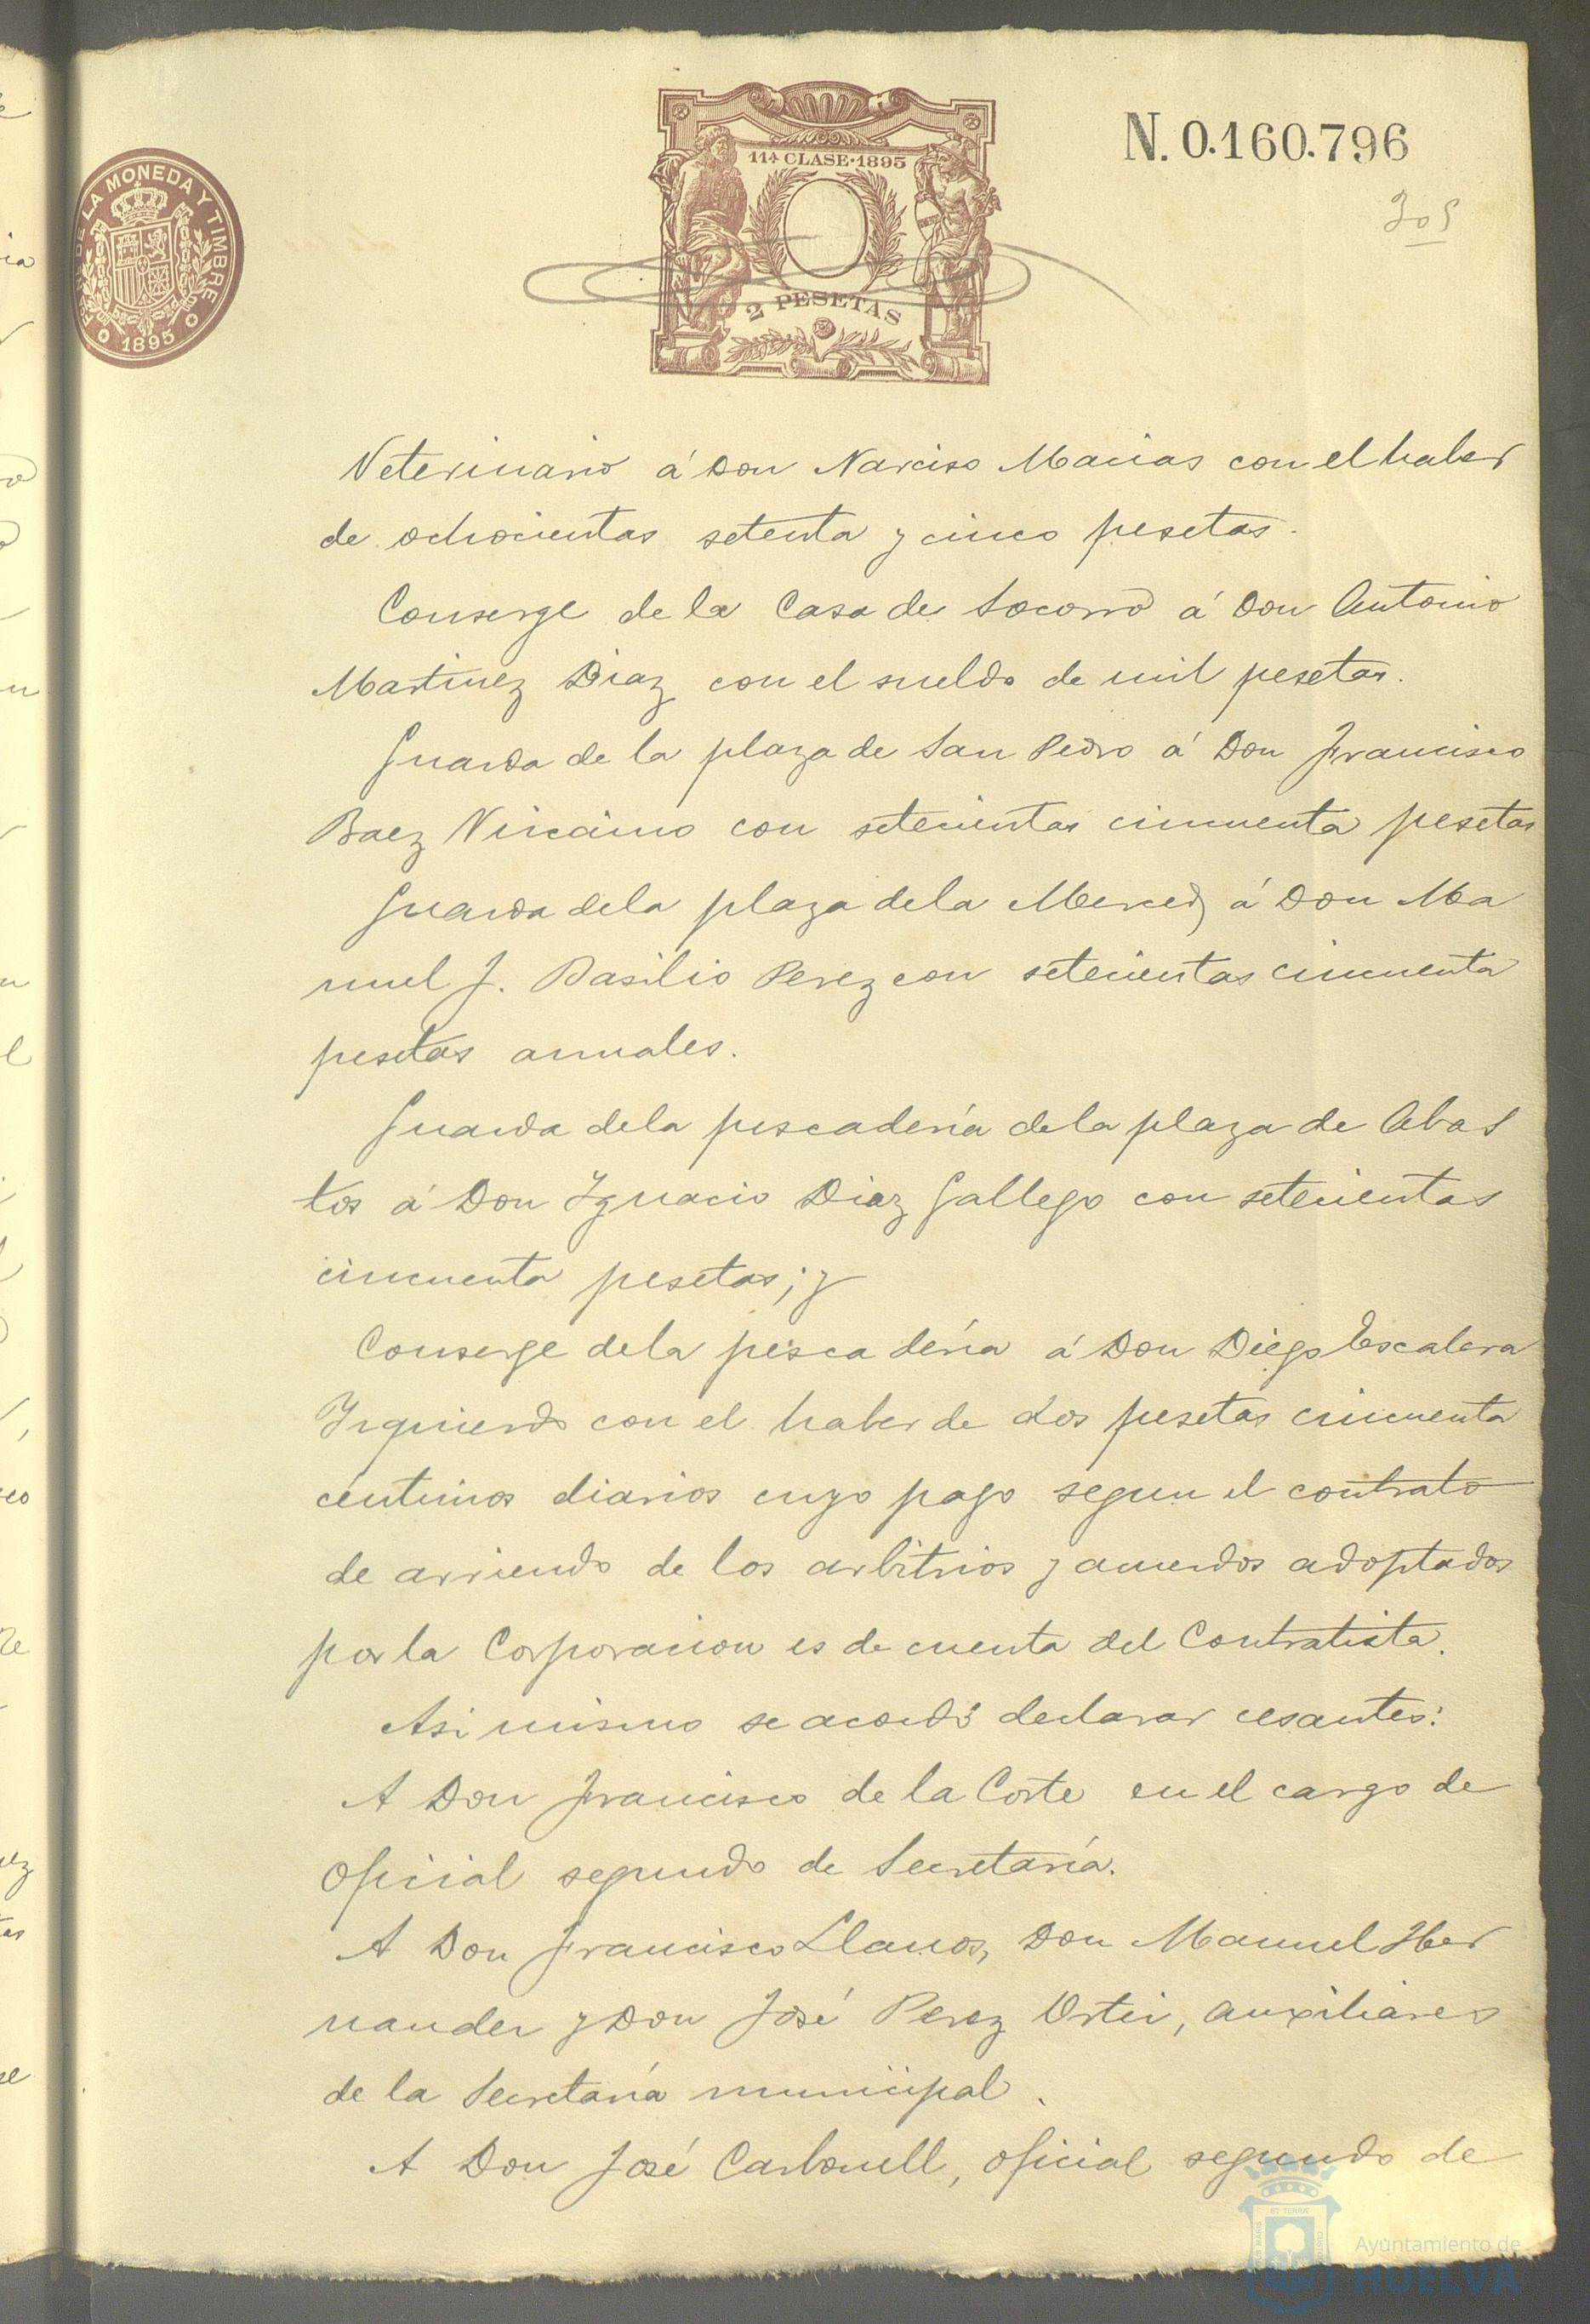 N. 0.160.796
305
11ª CLASE·1895
2 PESETAS
DE LA MONEDA Y TIMBRE
1895
Veterinario á Don Narciso Macias con el haber
de ochocientas setenta y cinco pesetas.
Conserge de la Casa de Socorro á Don Antonio
Martinez Diaz con el sueldo de mil pesetas.
Guarda de la plaza de San Pedro á Don Francisco
Baez con setecientas cincuenta pesetas
Guarda de la plaza de la Merced á Don Ma
nuel J. Basilio Perez con setecientas cincuenta
pesetas anuales.
Guarda de la pescadería de la plaza de Abas
tos á Don Ygnacio Diaz Gallego con setecientas
cincuenta pesetas; y
Conserge de la pescadería á Don Diego Escalera
Yzquierdo con el haber de dos pesetas cincuenta
céntimos diarios cuyo pago segun el contrato
de arriendo de los arbitrios y acuerdos adoptados
por la Corporacion es de cuenta del Contratista.
Asi mismo se acordó declarar cesantes:
A Don Francisco de la Corte en el cargo de
Oficial segundo de Secretaría.
A Don Francisco Llanos, Don Manuel Her
nandez y Don José Perez, auxiliares
de la Secretaría municipal.
A Don José Carbonell, oficial segundo de
Ayuntamiento de
HUELVA